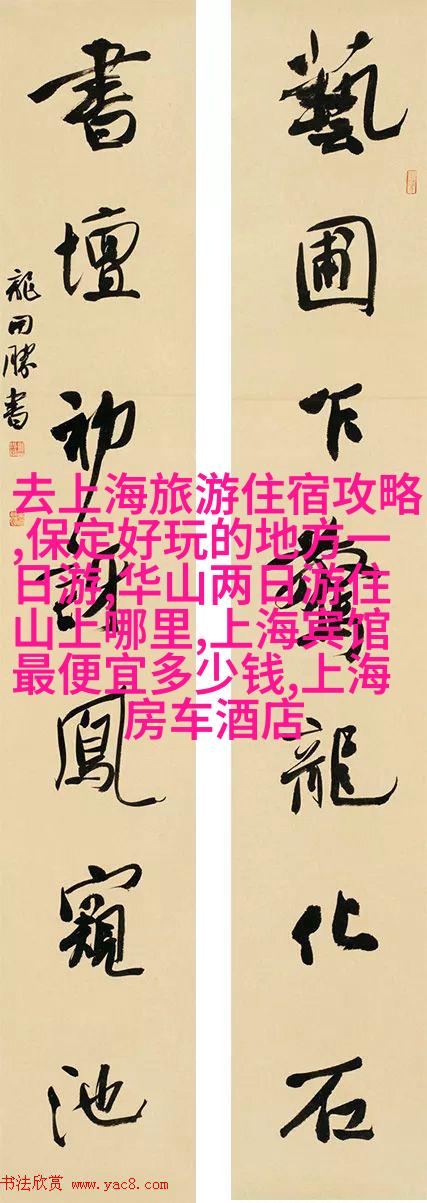 藝圃乍驚龍化石
書壇初訝鳳窺池
龍開勝書
去上海旅游住宿攻略
,保定好玩的地方一
日游,华山两日游住
山上哪里,上海宾馆
最便宜多少钱,上海
房车酒店
书法欣赏 www.yac8.com